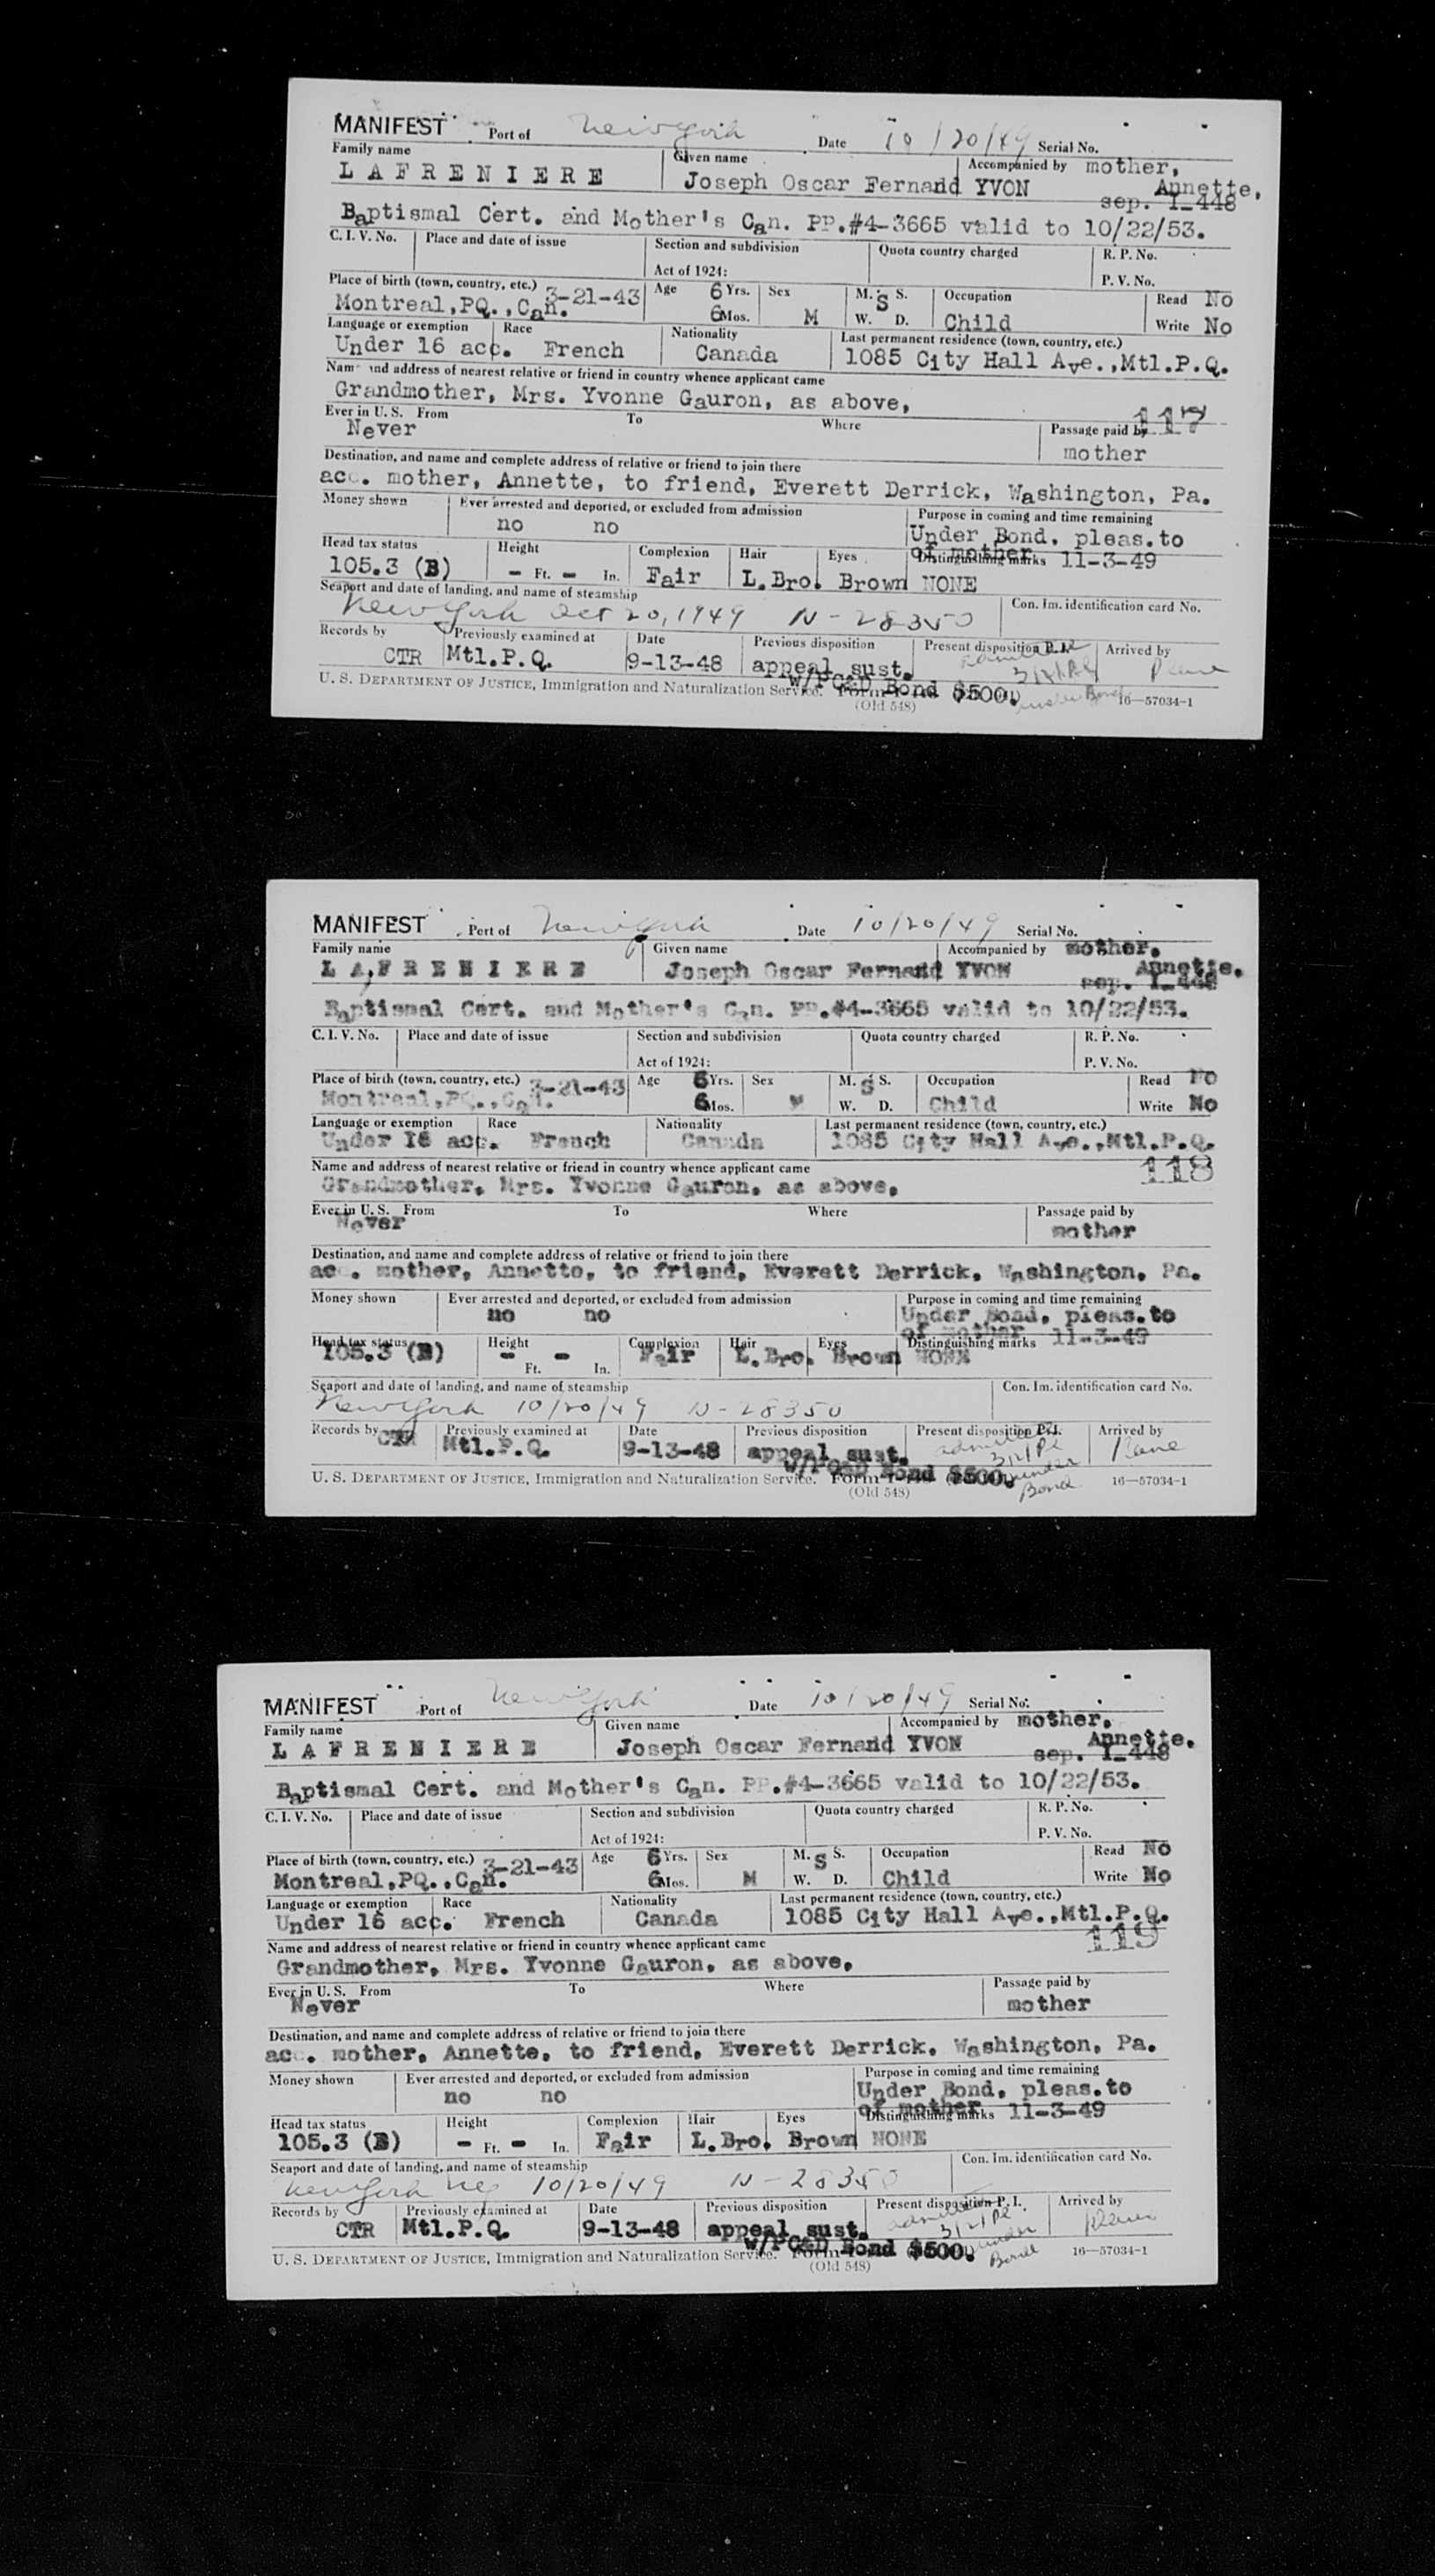 MANIFEST Port of New York Date 10/20/49 Serial No.
Family name Given name Accompanied by mother,
LAFRENIERE Joseph Oscar Fernand YVON Annette,
sep. I-448
Baptismal Cert. and Mother's Can. PP.#4-3665 valid to 10/22/53.
C. I. V. No. Place and date of issue Section and subdivision Quota country charged R. P. No.
Act of 1924: P. V. No.
Place of birth (town, country, etc.) 3-21-43 Age 6 Yrs. Sex M. S S. Occupation Read No
Montreal,PQ.,Can. 6 Mos. M W. D. Child Write No
Language or exemption Race Nationality Last permanent residence (town, country, etc.)
Under 16 acc. French Canada 1085 City Hall Ave.,Mtl.P.Q.
Nam and address of nearest relative or friend in country whence applicant came
Grandmother, Mrs. Yvonne Gauron, as above,
117
Ever in U. S. From To Where Passage paid by
Never mother
Destination, and name and complete address of relative or friend to join there
acc. mother, Annette, to friend, Everett Derrick, Washington, Pa.
Money shown Ever arrested and deported, or excluded from admission Purpose in coming and time remaining
no no Under Bond. pleas.to
of mother 11-3-49
Head tax status Height Complexion Hair Eyes Distinguishing marks
105.3 (B) - Ft. - In. Fair L.Bro. Brown NONE
Seaport and date of landing, and name of steamship Con. Im. identification card No.
New York Oct 20, 1949 N-28350
Records by Previously examined at Date Previous disposition Present disposition P.I. Arrived by
CTR Mtl.P.Q. 9-13-48 appeal sust. admitted 3/21/Pl Plane
w/PC&D Bond $500. under Bond
U. S. DEPARTMENT OF JUSTICE, Immigration and Naturalization Service. Form 16—57034-1
(Old 548)
MANIFEST Port of New York Date 10/20/49 Serial No.
Family name Given name Accompanied by mother.
LAFRENIERE Joseph Oscar Fernand YVON Annette.
sep. I-448
Baptismal Cert. and Mother's Can. PP.#4-3665 valid to 10/22/53.
C. I. V. No. Place and date of issue Section and subdivision Quota country charged R. P. No.
Act of 1924: P. V. No.
Place of birth (town, country, etc.) 3-21-43 Age 6 Yrs. Sex M. S S. Occupation Read No
Montreal,PQ.,Can. 6 Mos. M W. D. Child Write No
Language or exemption Race Nationality Last permanent residence (town, country, etc.)
Under 16 acc. French Canada 1085 City Hall Ave.,Mtl.P.Q.
Name and address of nearest relative or friend in country whence applicant came
118
Grandmother, Mrs. Yvonne Gauron, as above,
Ever in U. S. From To Where Passage paid by
Never mother
Destination, and name and complete address of relative or friend to join there
acc. mother, Annette, to friend, Everett Derrick, Washington, Pa.
Money shown Ever arrested and deported, or excluded from admission Purpose in coming and time remaining
no no Under Bond. pleas.to
of mother 11-3-49
Head tax status Height Complexion Hair Eyes Distinguishing marks
105.3 (B) - Ft. - In. Fair L.Bro. Brown NONE
Seaport and date of landing, and name of steamship Con. Im. identification card No.
New York 10/20/49 N-28350
Records by Previously examined at Date Previous disposition Present disposition P.I. Arrived by
CTR Mtl.P.Q. 9-13-48 appeal sust. admitted 3/21/Pl Plane
w/PC&D Bond $500. under Bond
U. S. DEPARTMENT OF JUSTICE, Immigration and Naturalization Service. Form 16—57034-1
(Old 548)
MANIFEST Port of New York Date 10/20/49 Serial No.
Family name Given name Accompanied by mother.
LAFRENIERE Joseph Oscar Fernand YVON Annette.
sep. I-448
Baptismal Cert. and Mother's Can. PP.#4-3665 valid to 10/22/53.
C. I. V. No. Place and date of issue Section and subdivision Quota country charged R. P. No.
Act of 1924: P. V. No.
Place of birth (town, country, etc.) 3-21-43 Age 6 Yrs. Sex M. S S. Occupation Read No
Montreal,PQ.,Can. 6 Mos. M W. D. Child Write No
Language or exemption Race Nationality Last permanent residence (town, country, etc.)
Under 16 acc. French Canada 1085 City Hall Ave.,Mtl.P.Q.
119
Name and address of nearest relative or friend in country whence applicant came
Grandmother, Mrs. Yvonne Gauron, as above,
Ever in U. S. From To Where Passage paid by
Never mother
Destination, and name and complete address of relative or friend to join there
acc. mother, Annette, to friend, Everett Derrick, Washington, Pa.
Money shown Ever arrested and deported, or excluded from admission Purpose in coming and time remaining
no no Under Bond. pleas.to
of mother 11-3-49
Head tax status Height Complexion Hair Eyes Distinguishing marks
105.3 (B) - Ft. - In. Fair L.Bro. Brown NONE
Seaport and date of landing, and name of steamship Con. Im. identification card No.
New York 10/20/49 N-28350
Records by Previously examined at Date Previous disposition Present disposition P.I. Arrived by
CTR Mtl.P.Q. 9-13-48 appeal sust. admitted 3/21/Pl Plane
w/PC&D Bond $500. under Bond
U. S. DEPARTMENT OF JUSTICE, Immigration and Naturalization Service. Form 16—57034-1
(Old 548)